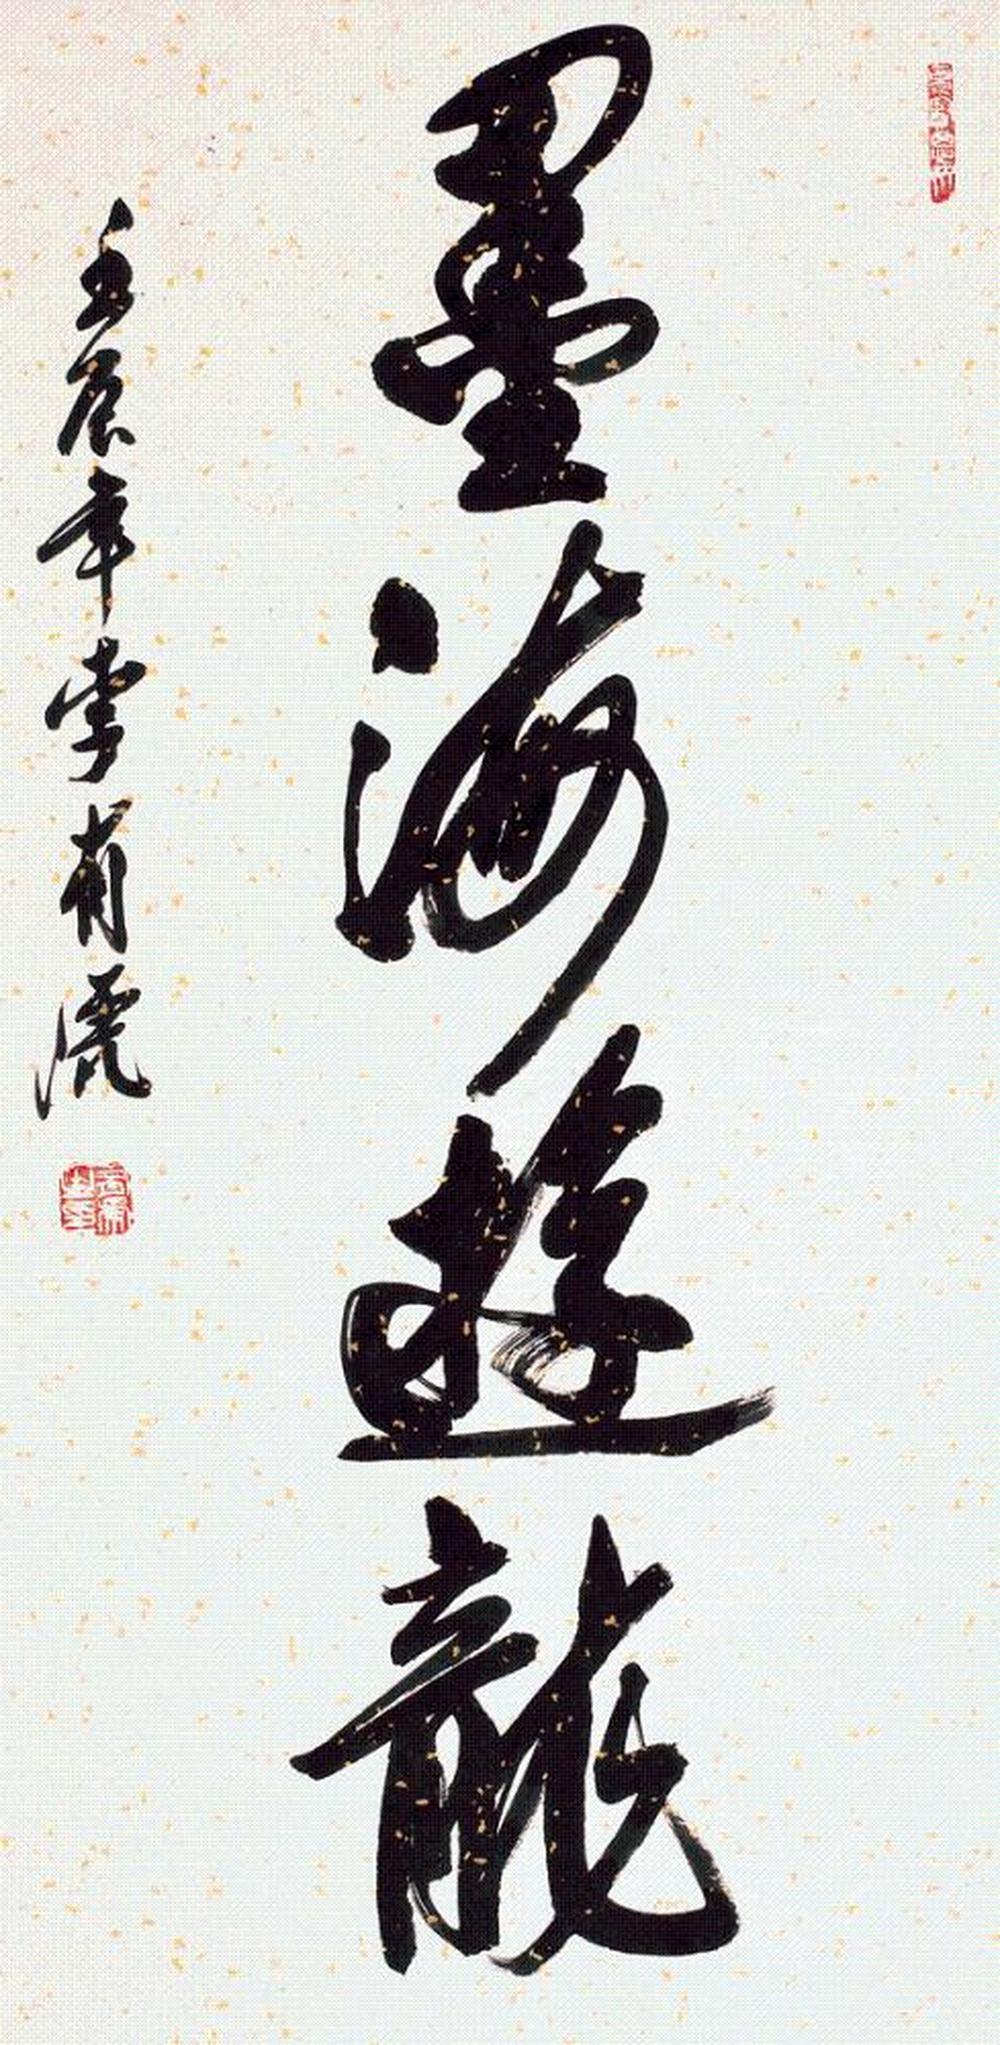 墨海遊龍
壬辰年李有流